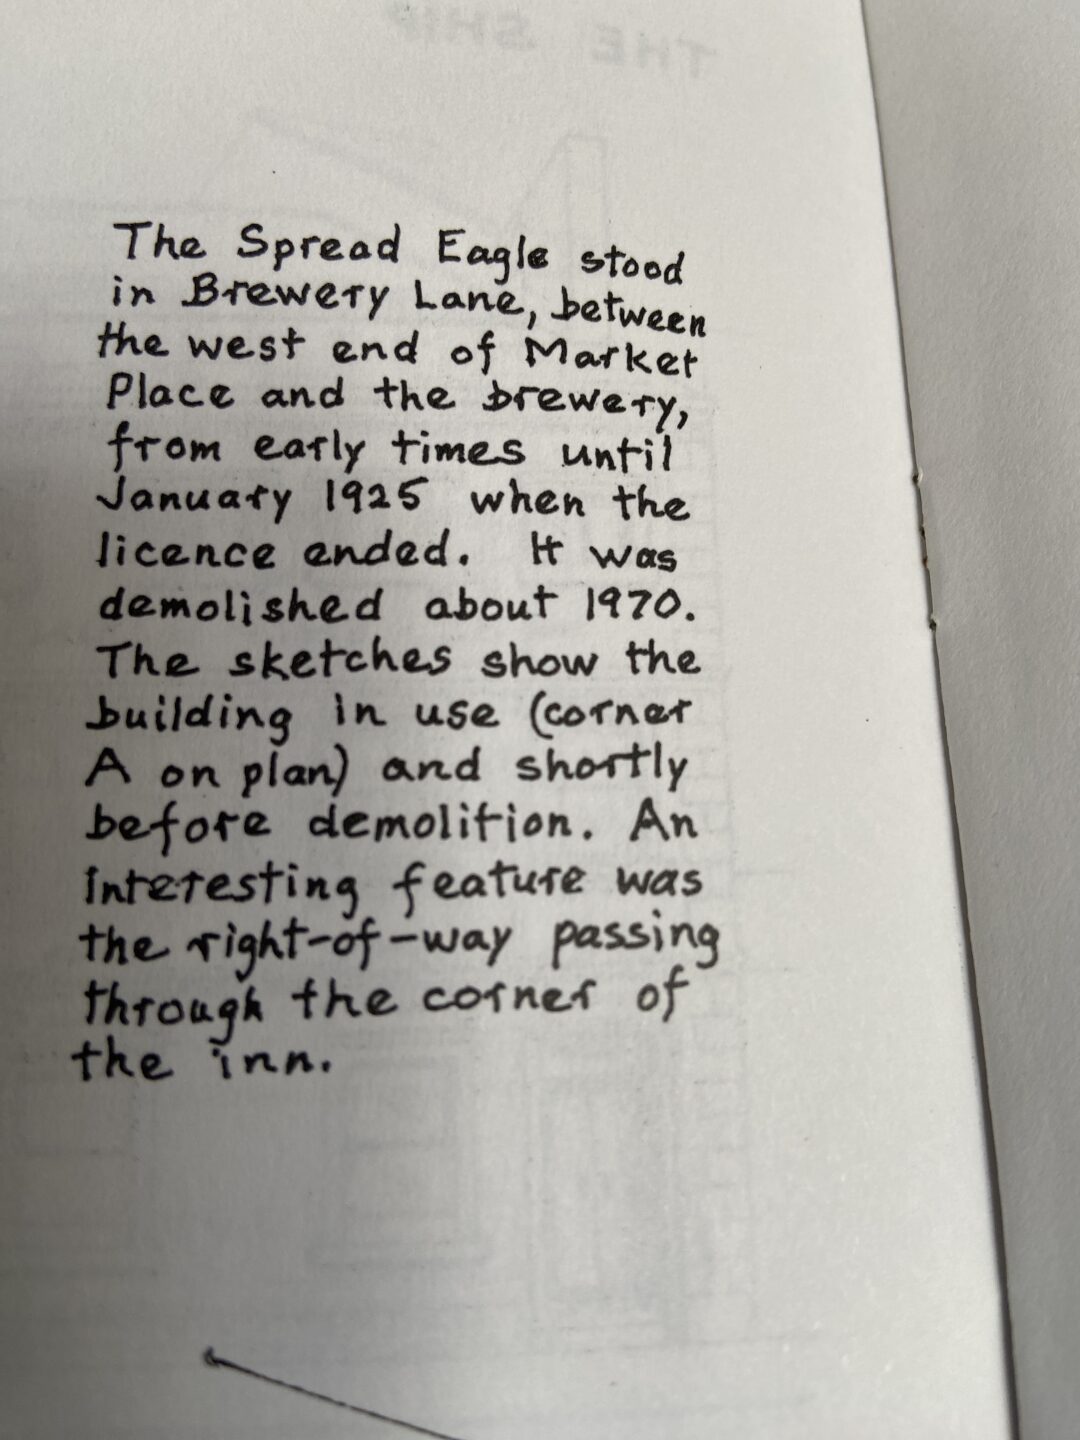 THE SHIP
The Spread Eagle stood
in Brewery Lane, between
the west end of Market
Place and the brewery,
from early times until
January 1925 when the
licence ended. It was
demolished about 1970.
The sketches show the
building in use (corner
A on plan) and shortly
before demolition. An
interesting feature was
the right-of-way passing
through the corner of
the inn.